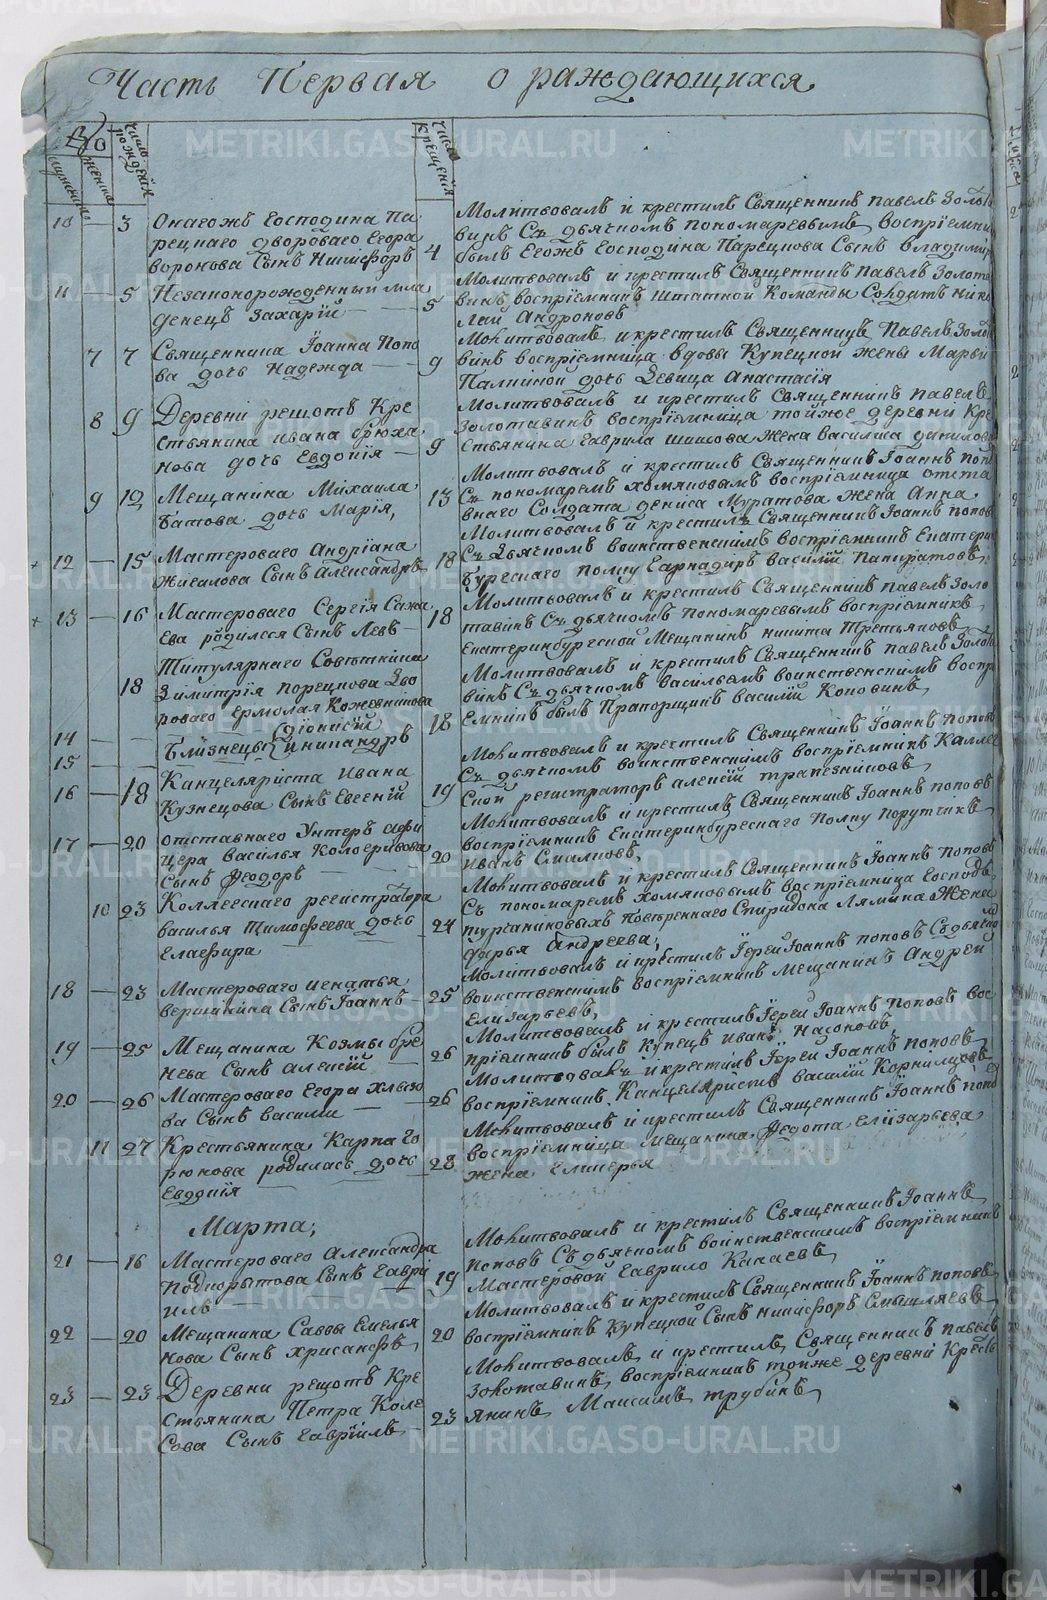 Часть Первая о раждающихся
Число рождения
Число крещения
10 — 3 Онагожъ Господина Па
рецнаго дворового Егора
Воронова Сынъ Никифоръ
4 Молитвовалъ и крестилъ Священникъ Павелъ Золота
винъ Съ дьячкомъ пономаревымъ, воспріемни
былъ Егожъ Господина Парецкова Сынъ Владимир
11 — 5 Незаконорожденный мла
денецъ Захарій —
5 Молитвовалъ и крестилъ Священникъ Павелъ Золота
винъ воспріемникъ штатной Команды Солдатъ Нико
лай Андроновъ
7 7 Священника Іоанна Попо
ва дочь Надежда —
9 Молитвовалъ и крестилъ Священникъ Павелъ Золот
винъ воспріемница вдовы Купецкой жены Марьи
Палкиной дочь Девица Анастасія
8 9 Деревни решотъ Кре
стьянина Ивана брюха
нова дочь Евдокія —
9 Молитвовалъ и крестилъ Священникъ Павелъ
Золотавинъ воспріемница тойже деревни Кре
стьянина Гаврила шишова Жена Василиса данилова
9 12 Мещанина Михаила
Батова дочь Марія,
13 Молитвовалъ и крестилъ Священникъ Іоаннъ попо
Съ пономаремъ хомяковымъ воспріемница отста
внаго Солдата дениса Муратова Жена Анна
12 — 15 Мастероваго Андріана
Жигалова Сынъ Александръ
18 Молитвовалъ и крестилъ Священникъ Іоаннъ попов
Съ Дьячкомъ воинственскимъ воспріемникъ Екатерин
бургскаго полку Гарнадиръ Василій Панкратовъ
13 — 16 Мастероваго Сергія Сажа
Ева родился Сынъ Левъ —
18 Молитвовалъ и крестилъ Священникъ Павелъ Золо
тавинъ Съ дьячкомъ пономаревымъ воспріемникъ
Екатеринбургской Мещанинъ никита Третьяковъ
18 Титулярнаго Совѣтника
Димитрія порецкова Дво
роваго Ермолая Кожевникова
14 — Близнецы Діонисій
15 — и никандръ
18 Молитвовалъ и крестилъ Священникъ павелъ Золота
винъ Съ дьячкомъ васильемъ воинственскимъ воспрі
емникъ былъ Прапорщикъ Василій Коповинъ
16 — 18 Канцеляриста Ивана
Кузнецова Сынъ Евгеній
19 Молитвовалъ и крестилъ Священникъ Іоаннъ поповъ
Съ дьячкомъ воинственскимъ воспріемникъ Коллеж
ской регистраторъ алексій трапезниковъ
17 — 20 отставнаго Унтеръ афи
цера Василья Кологривова
Сынъ феодоръ —
20 Молитвовалъ и крестилъ Священникъ Іоаннъ поповъ
воспріемникъ Екатеринбургскаго Полку порутчикъ
Иванъ Смалковъ,
10 23 Коллежскаго регистратора
василья Тимофеева дочь
Глафира
24 Молитвовалъ и крестилъ Священникъ Іоаннъ поповъ
Съ пономаремъ хомяковымъ воспріемница Господъ
турчаниновыхъ повѣреннаго Спиридона Лямина Жена
дарья Андреева;
18 — 23 Мастероваго игнатья
вершинина Сынъ Іоаннъ —
25 Молитвовалъ и крестилъ Іерей Іоаннъ поповъ Съ дьячко
воинственскимъ воспріемникъ Мещанинъ Андрей
Елизарьевъ,
19 — 25 Мещанина Козмы бре
нева Сынъ алексій
26 Молитвовалъ и крестилъ Іерей Іоаннъ Поповъ вос
пріемникъ былъ Купецъ Иванъ Насоновъ,
20 — 26 Мастероваго Егора хлызо
ва Сынъ василій —
26 Молитвовалъ и крестилъ Іерей Іоаннъ поповъ
воспріемникъ Канцеляристъ василій Корниловъ
11 27 Крестьянина Карпа Го
рюнова родилась дочь
Евдокія —
28 Молитвовалъ и крестилъ Священникъ Іоаннъ попо
воспріемница мещанина федота Елизарьева
жена Гликерья
Марта;
21 — 16 Мастероваго Александра
Подкорытова Сынъ Гаврі
илъ —
19 Молитвовалъ и крестилъ Священникъ Іоаннъ
поповъ Съ дьячкомъ воинственскимъ воспріемникъ
Мастеровой Гаврило Кикаевъ
22 — 20 Мещанина Саввы Емелья
нова Сынъ хрисанфъ,
20 Молитвовалъ и крестилъ Священникъ Іоаннъ поповъ
воспріемникъ Купецкой Сынъ никифоръ Смышляевъ
23 — 23 Деревни решотъ Кре
стьянина Петра Коле
сова Сынъ Гавріилъ
23 Молитвовалъ и крестилъ Священникъ павелъ
Золотавинъ, воспріемникъ тойже деревни Кресть
янинъ Максимъ трубинъ,
METRIKI.GASO-URAL.RU